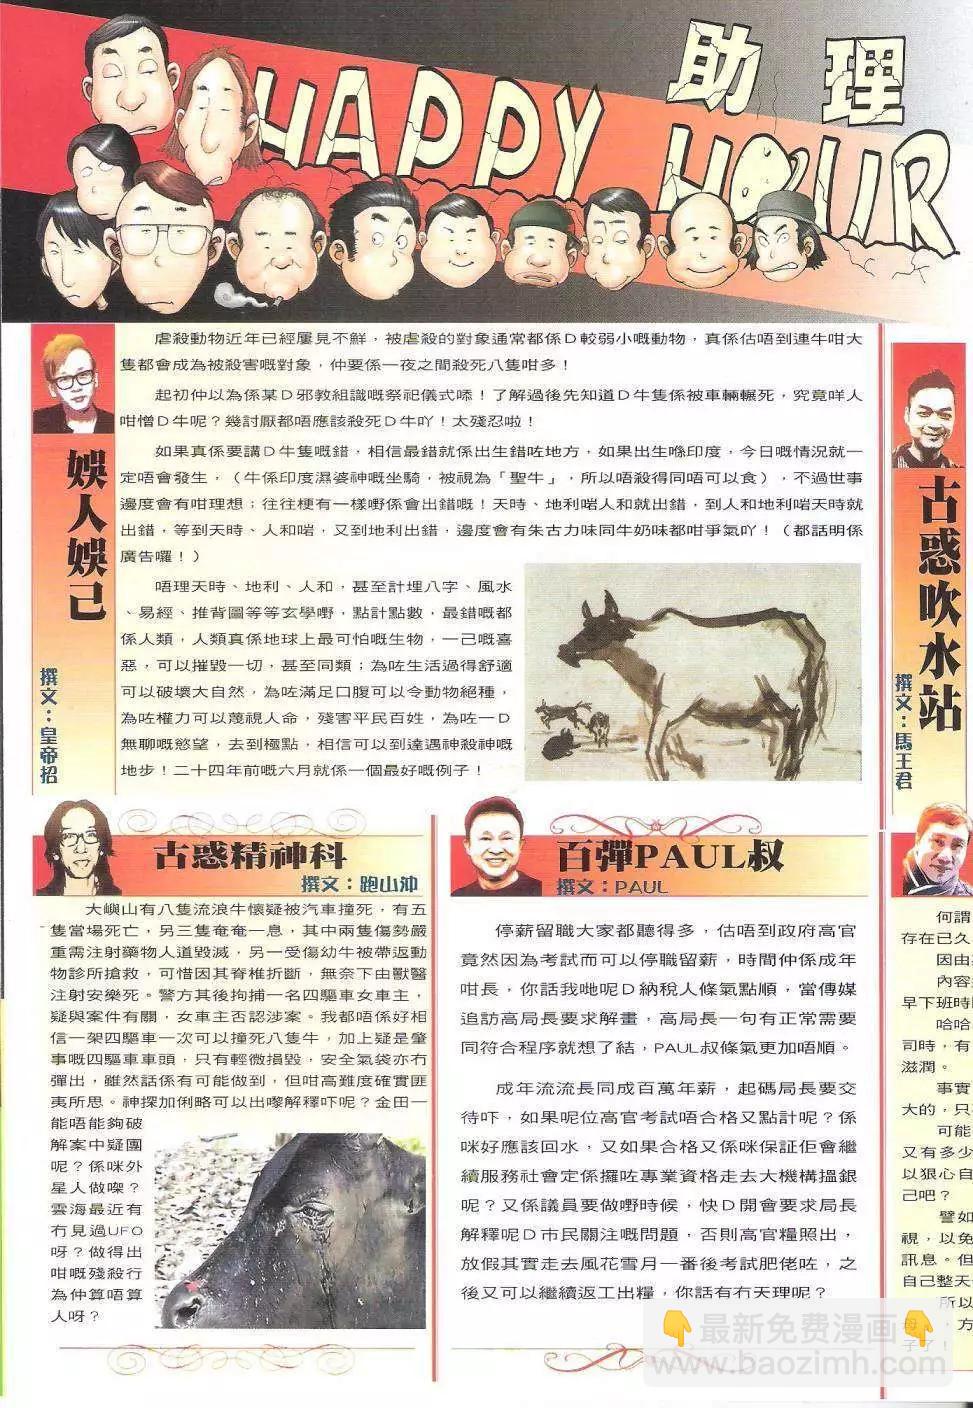 助理
HAPPY HOUR
娛人娛己
撰文：皇帝招
虐殺動物近年已經屢見不鮮，被虐殺的對象通常都係D較弱小嘅動物，真係估唔到連牛咁大
隻都會成為被殺害嘅對象，仲要係一夜之間殺死八隻咁多！
起初仲以為係某D邪教組識嘅祭祀儀式㗎！了解過後先知道D牛隻係被車輛輾死，究竟咩人
咁憎D牛呢？幾討厭都唔應該殺死D牛吖！太殘忍啦！
如果真係要講D牛隻嘅錯，相信最錯就係出生錯咗地方，如果出生喺印度，今日嘅情況就一
定唔會發生，（牛係印度濕婆神嘅坐騎，被視為「聖牛」，所以唔殺得同唔可以食），不過世事
邊度會有咁理想；往往梗有一樣嘢係會出錯嘅！天時、地利啱人和就出錯，到人和地利啱天時就
出錯，等到天時、人和啱，又到地利出錯，邊度會有朱古力味同牛奶味都咁爭氣吖！（都話明係
廣告囉！）
唔理天時、地利、人和，甚至計埋八字、風水
、易經、推背圖等等玄學嘢，點計點數，最錯嘅都
係人類，人類真係地球上最可怕嘅生物，一己嘅喜
惡，可以摧毀一切，甚至同類；為咗生活過得舒適
可以破壞大自然，為咗滿足口腹可以令動物絕種，
為咗權力可以蔑視人命，殘害平民百姓，為咗一D
無聊嘅慾望，去到極點，相信可以到達遇神殺神嘅
地步！二十四年前嘅六月就係一個最好嘅例子！
古惑吹水站
撰文：馬王君
古惑精神科
撰文：跑山沖
大嶼山有八隻流浪牛懷疑被汽車撞死，有五
隻當場死亡，另三隻奄奄一息，其中兩隻傷勢嚴
重需注射藥物人道毀滅，另一受傷幼牛被帶返動
物診所搶救，可惜因其脊椎折斷，無奈下由獸醫
注射安樂死。警方其後拘捕一名四驅車女車主，
疑與案件有關，女車主否認涉案。我都唔係好相
信一架四驅車一次可以撞死八隻牛，加上疑是肇
事嘅四驅車車頭，只有輕微損毀，安全氣袋亦冇
彈出，雖然話係有可能做到，但咁高難度確實匪
夷所思。神探加俐略可以出嚟解釋吓呢？金田一
能唔能夠破
解案中疑團
呢？係咪外
星人做㗎？
雲海最近有
冇見過UFO
呀？做得出
咁嘅殘殺行
為仲算唔算
人呀？
百彈PAUL叔
撰文：PAUL
停薪留職大家都聽得多，估唔到政府高官
竟然因為考試而可以停職留薪，時間仲係成年
咁長，你話我哋呢D納稅人條氣點順，當傳媒
追訪高局長要求解畫，高局長一句有正常需要
同符合程序就想了結，PAUL叔條氣更加唔順。
成年流流長同成百萬年薪，起碼局長要交
待吓，如果呢位高官考試唔合格又點計呢？係
咪好應該回水，又如果合格又係咪保証佢會繼
續服務社會定係攞咗專業資格走去大機構搵銀
呢？又係議員要做嘢時候，快D開會要求局長
解釋呢D市民關注嘅問題，否則高官糧照出，
放假其實走去風花雪月一番後考試肥佬咗，之
後又可以繼續返工出糧，你話有冇天理呢？
何謂
存在已久
因由
內容
早下班時
哈哈
司時，有
滋潤。
事實
大的，只
可能
又有多少
以狠心自
己吧？
譬如
視，以免
訊息。但
自己整天
所以
母，方
子了！
👇最新免费漫画👇
www.baozimh.com